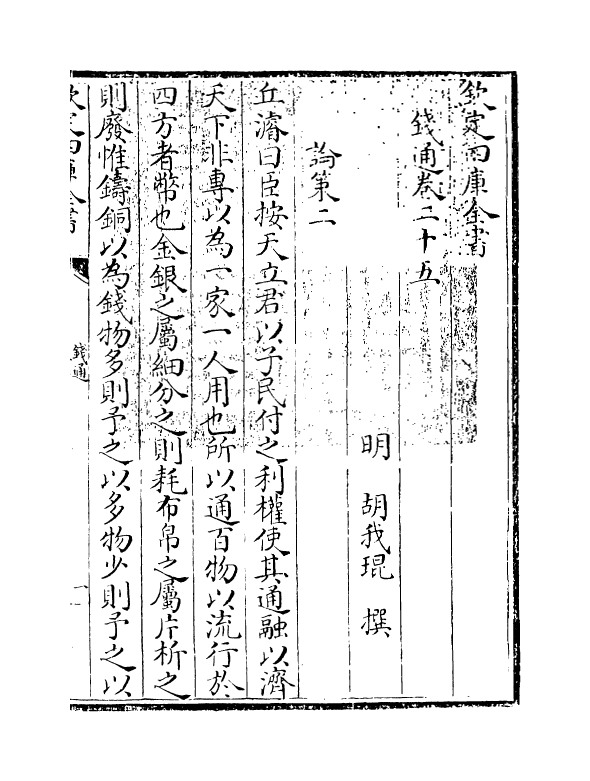 欽定四庫全書
錢通卷二十五
明 胡我琨 撰
論第二
丘濬曰臣按天立君以子民付之利權使其通融以濟
天下非專以為一家一人用也所以通百物以流行於
四方者幣也金銀之屬細分之則耗布帛之屬片析之
則廢惟鑄銅以為錢物多則予之以多物少則予之以
欽定四庫全書
錢通
一